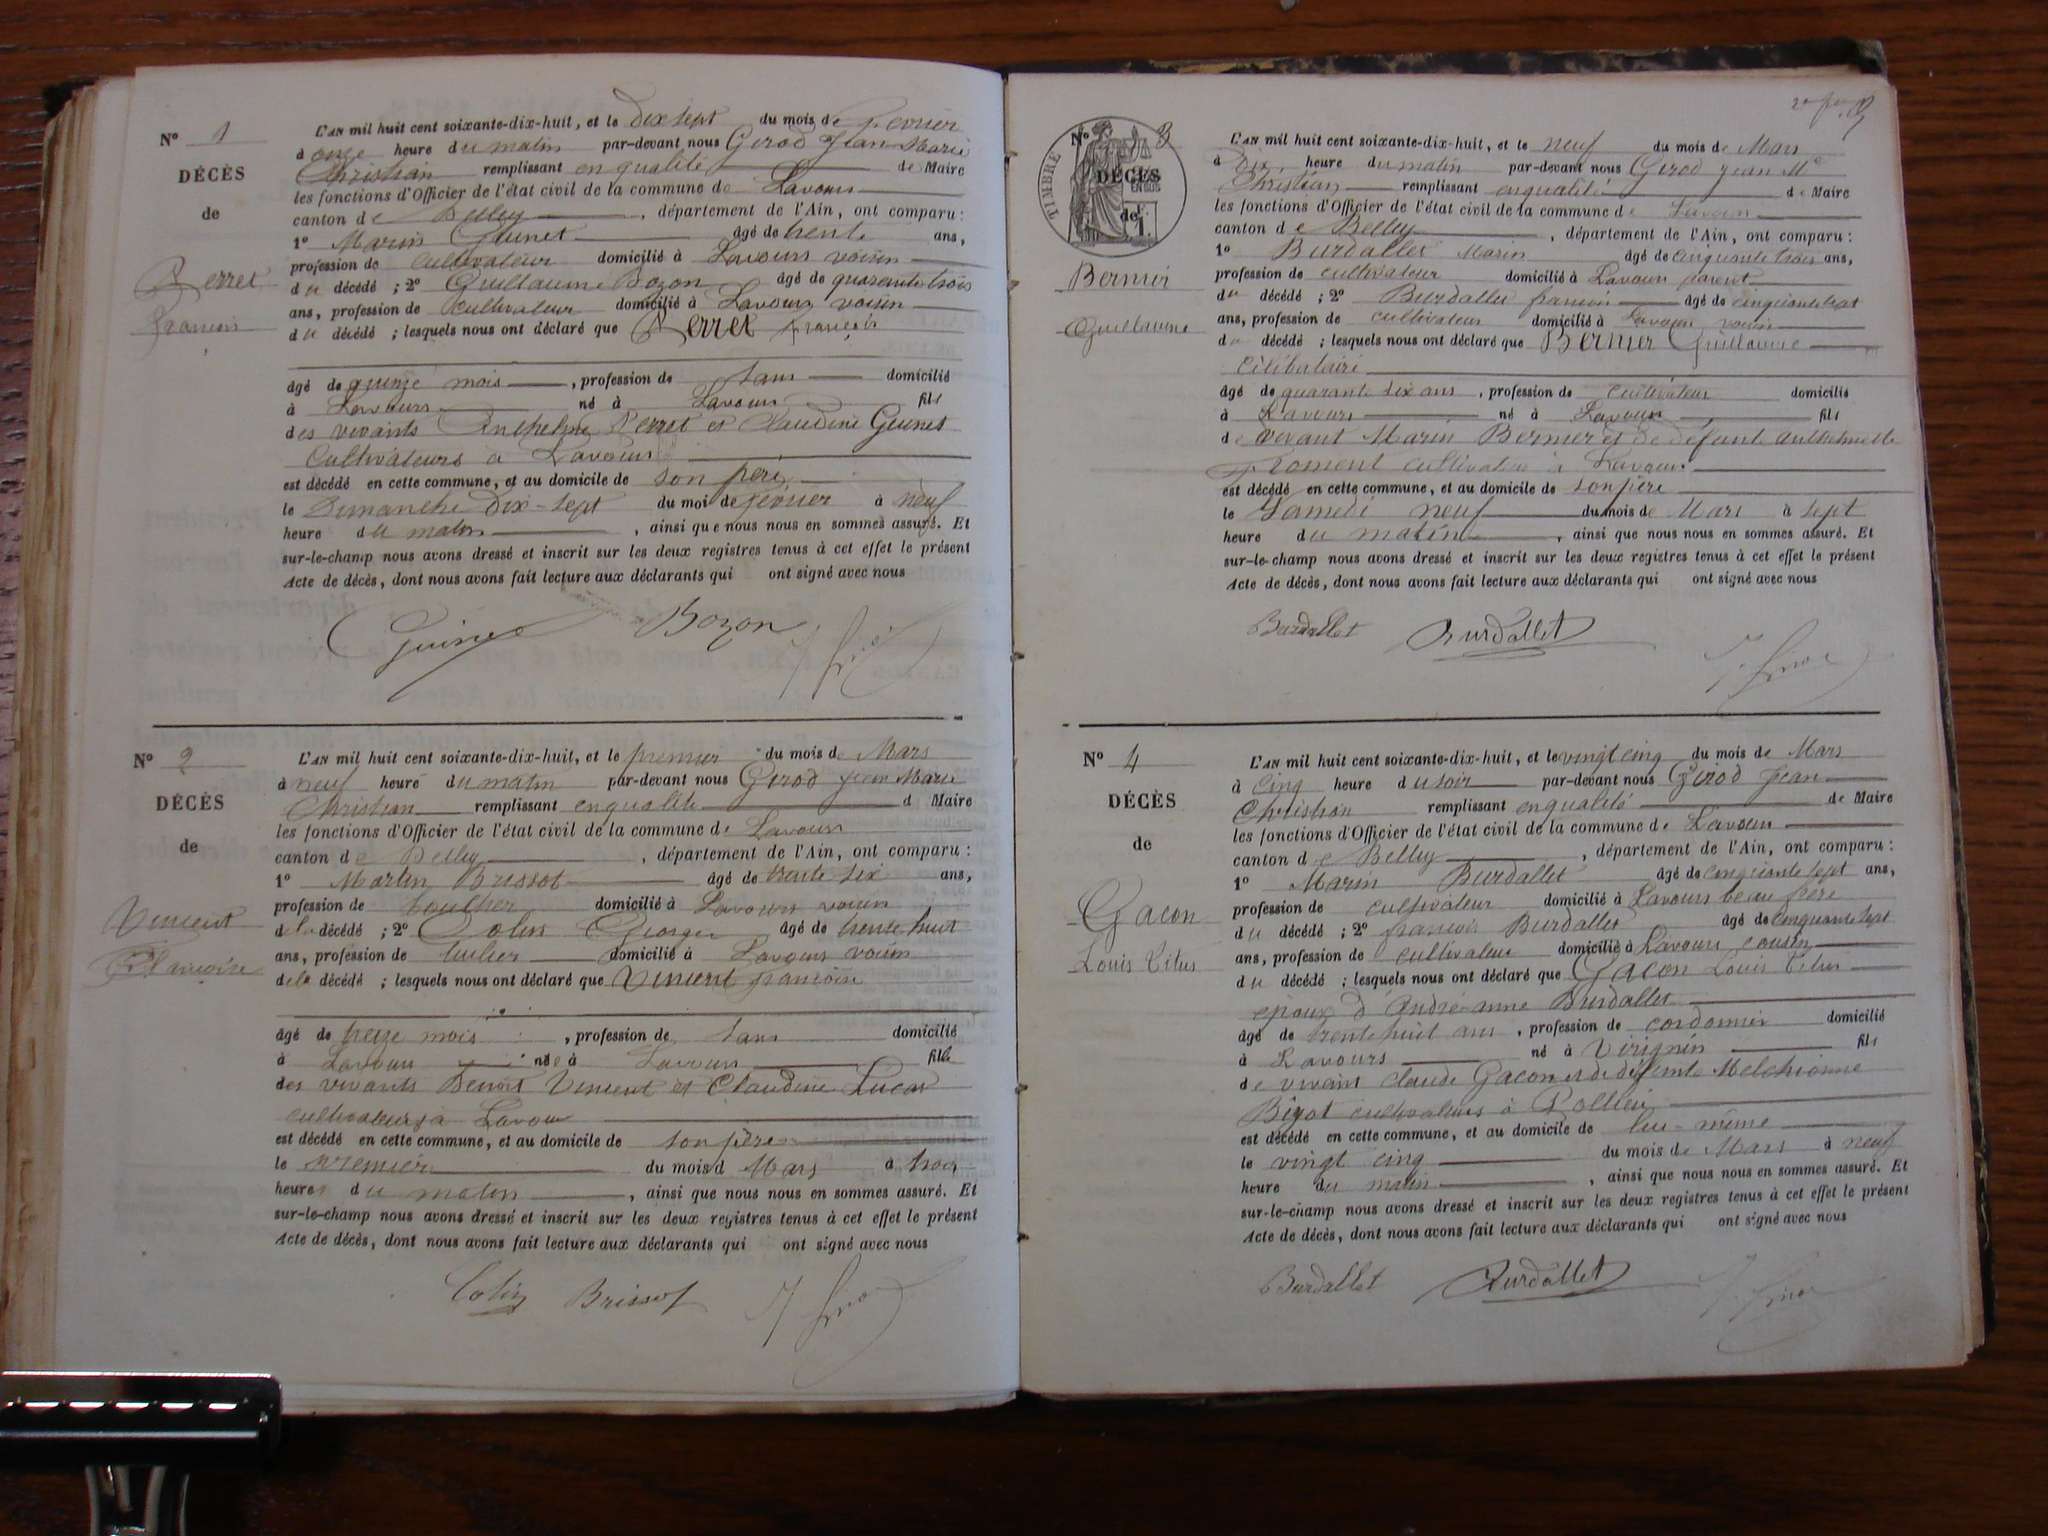 N° 1
DÉCÈS
de
Perret
François
L'AN mil huit cent soixante-dix-huit, et le Dix sept du mois de Fevrier
à onze heure du matin par-devant nous Girod Jean Marie
Christian remplissant en qualité de Maire
les fonctions d'Officier de l'état civil de la commune de Lavours
canton de Belley, département de l'Ain, ont comparu :
1° Marin Guinet âgé de trente ans,
profession de cultivateur domicilié à Lavours voisin
du décédé ; 2° Guillaume Bozon âgé de quarante trois
ans, profession de cultivateur domicilié à Lavours voisin
du décédé ; lesquels nous ont déclaré que Perret François
âgé de quinze mois, profession de sans domicilié
à Lavours né à Lavours fils
des vivants Anthelme Perret et Claudine Guinet
Cultivateurs a Lavours
est décédé en cette commune, et au domicile de son père
le Dimanche Dix-sept du moi de février à neuf
heure du matin, ainsi que nous nous en sommes assuré. Et
sur-le-champ nous avons dressé et inscrit sur les deux registres tenus à cet effet le présent
Acte de décès, dont nous avons fait lecture aux déclarants qui ont signé avec nous
Guinet Bozon
N° 2
DÉCÈS
de
Vincent
Françoise
L'AN mil huit cent soixante-dix-huit, et le premier du mois de Mars
à neuf heure du matin par-devant nous Girod Jean Marie
Christian remplissant en qualité d Maire
les fonctions d'Officier de l'état civil de la commune de Lavours
canton de Belley, département de l'Ain, ont comparu :
1° Martin Brissot âgé de trente six ans,
profession de domicilié à Lavours voisin
de la décédé ; 2° Colin Georges âgé de trente huit
ans, profession de tuilier domicilié à Lavours voisin
de la décédé ; lesquels nous ont déclaré que Vincent françoise
âgé de treize mois, profession de sans domicilié
à Lavours née à Lavours fille
des vivants Benoit Vincent et Claudine Lucas
cultivateurs à Lavour
est décédé en cette commune, et au domicile de son père
le premier du mois d Mars à trois
heures du matin, ainsi que nous nous en sommes assuré. Et
sur-le-champ nous avons dressé et inscrit sur les deux registres tenus à cet effet le présent
Acte de décès, dont nous avons fait lecture aux déclarants qui ont signé avec nous
Colin Brissot
N° 3
TIMBRE
DÉCÈS
de
Bernier
Guillaume
L'AN mil huit cent soixante-dix-huit, et le neuf du mois de Mars
à Dix heure du matin par-devant nous Girod Jean Mie
Christian remplissant en qualité de Maire
les fonctions d'Officier de l'état civil de la commune de Lavours
canton de Belley, département de l'Ain, ont comparu :
1° Burdallet Marin âgé de cinquante trois ans,
profession de cultivateur domicilié à Lavours parent
du décédé ; 2° Burdallet françois âgé de cinquante sept
ans, profession de cultivateur domicilié à Lavours voisin
du décédé ; lesquels nous ont déclaré que Bernier Guillaume
célibataire
âgé de quarante six ans, profession de cultivateur domicilié
à Lavours né à Lavours fils
de vivant Marin Bernier et de défunte Anthelmette
Froment cultivateur à Lavours
est décédé en cette commune, et au domicile de son père
le Samedi neuf du mois de Mars à sept
heure du matin, ainsi que nous nous en sommes assuré. Et
sur-le-champ nous avons dressé et inscrit sur les deux registres tenus à cet effet le présent
Acte de décès, dont nous avons fait lecture aux déclarants qui ont signé avec nous
Burdallet Burdallet
N° 4
DÉCÈS
de
Gacon
Louis Titus
L'AN mil huit cent soixante-dix-huit, et le vingt cinq du mois de Mars
à cinq heure du soir par-devant nous Girod Jean
Christian remplissant en qualité de Maire
les fonctions d'Officier de l'état civil de la commune de Lavours
canton de Belley, département de l'Ain, ont comparu :
1° Marin Burdallet âgé de cinquante sept ans,
profession de cultivateur domicilié à Lavours beau frère
du décédé ; 2° françois Burdallet âgé de cinquante sept
ans, profession de cultivateur domicilié à Lavours cousin
du décédé ; lesquels nous ont déclaré que Gacon Louis Titus
epoux d'Andréanne Burdallet
âgé de trente huit ans, profession de cordonnier domicilié
à Lavours né à Virignin fils
de vivant Claude Gacon et de défunte Melchionne
Bigot cultivateurs à Pollieu
est décédé en cette commune, et au domicile de lui-même
le vingt cinq du mois de Mars à neuf
heure du matin, ainsi que nous nous en sommes assuré. Et
sur-le-champ nous avons dressé et inscrit sur les deux registres tenus à cet effet le présent
Acte de décès, dont nous avons fait lecture aux déclarants qui ont signé avec nous
Burdallet Burdallet